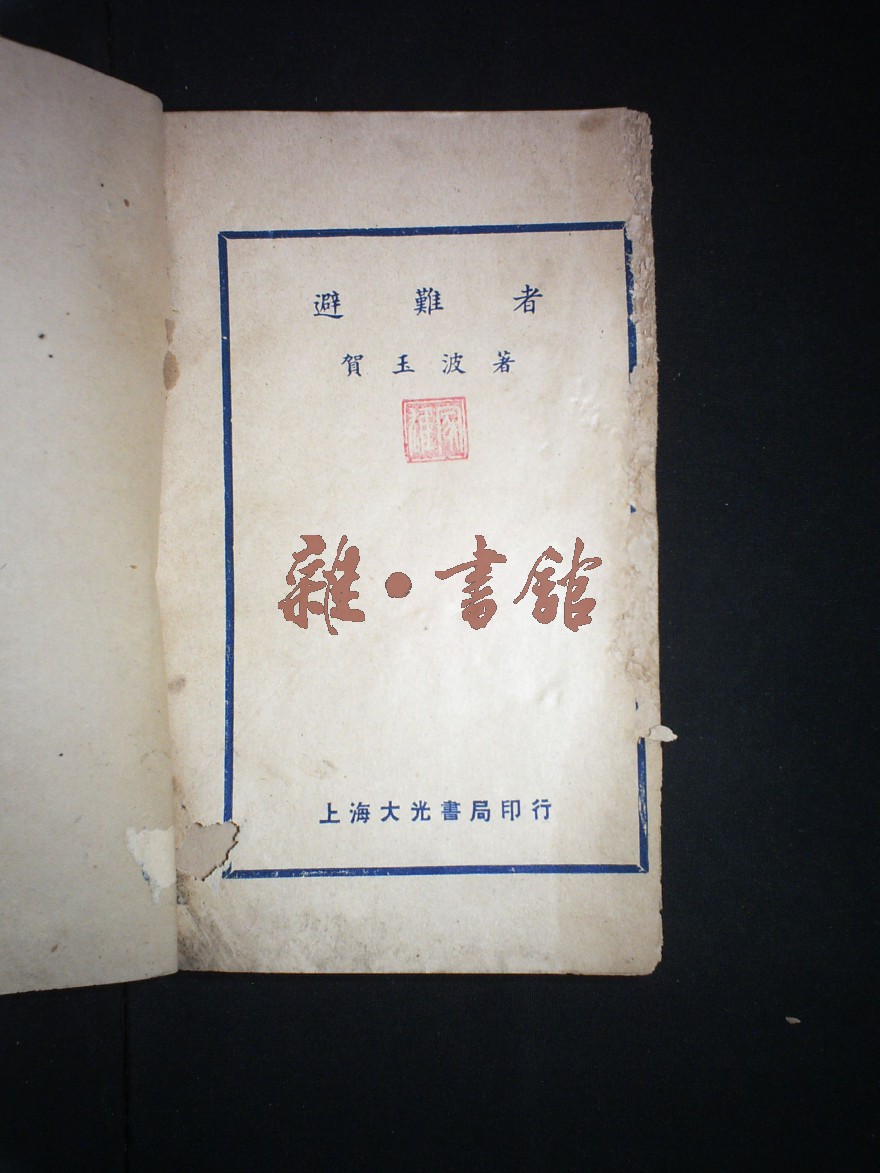 避難者
賀玉波著
雜·書館
上海大光書局印行